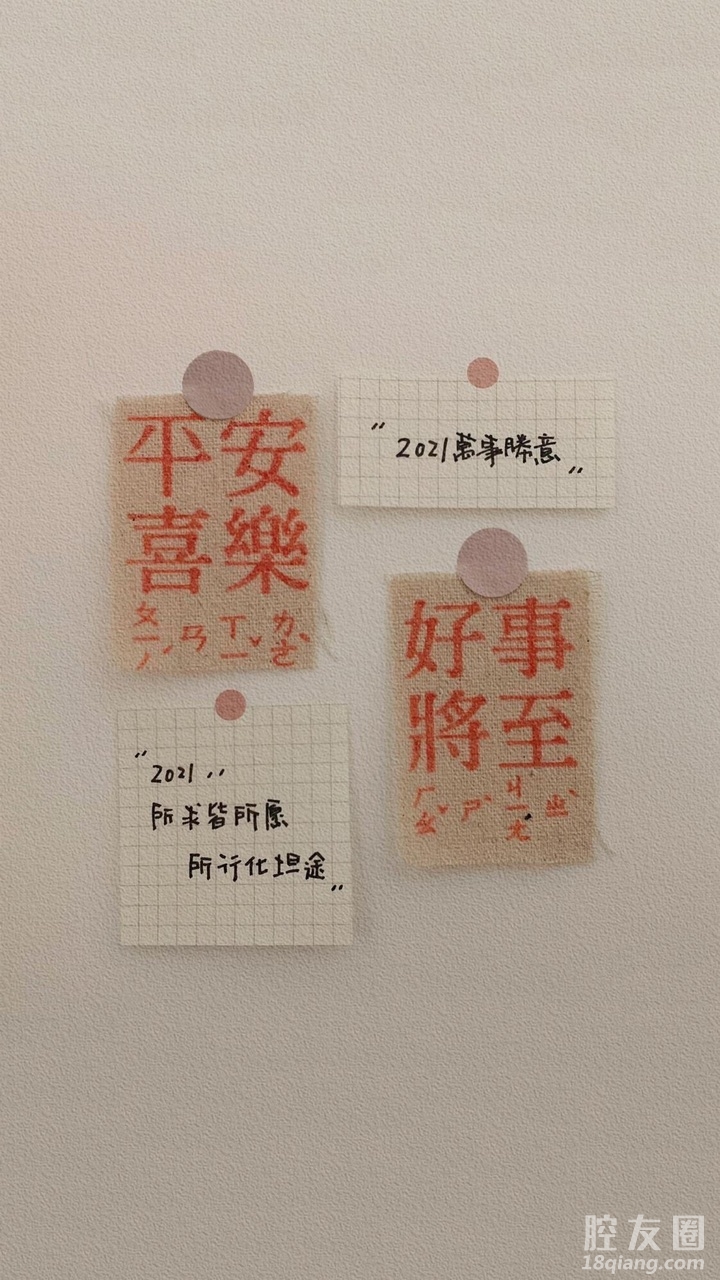 平安
喜樂
ㄆㄧㄥˊ ㄢ ㄒㄧˇ ㄌㄜˋ
"2021萬事勝意"
好事
將至
ㄏㄠˇ ㄕˋ ㄐㄧㄤ ㄓˋ
"2021,,
所求皆所愿
所行化坦途"
腔友圈
18qiang.com